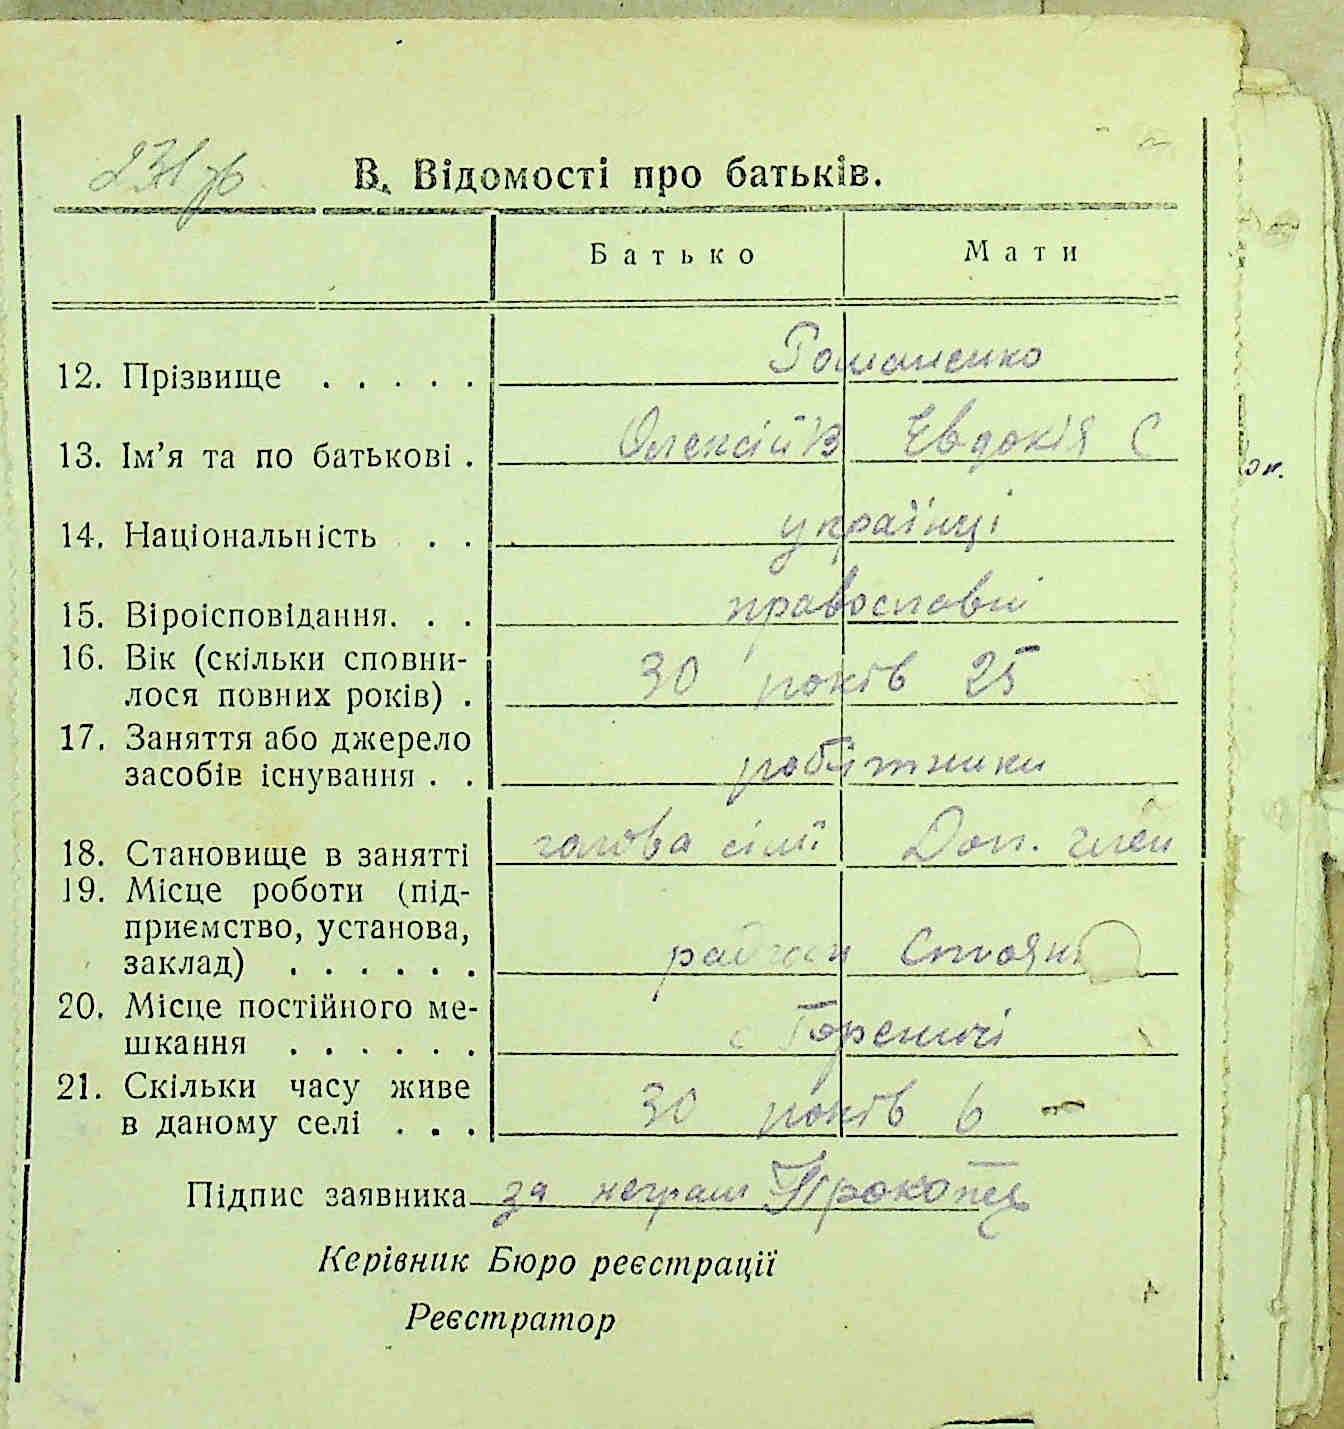 В. Відомості про батьків.
Батько Мати
12. Прізвище . . . . . Романенко
13. Ім’я та по батькові . Олексій В Євдокія С
14. Національність . . українці
15. Віроісповідання. . . православні
16. Вік (скільки сповни-
лося повних років) . 30 років 25
17. Заняття або джерело
засобів існування . . робітники
18. Становище в занятті голова сімї Доп. член
19. Місце роботи (під-
приємство, установа,
заклад) . . . . . .
20. Місце постійного ме-
шкання . . . . . . с Гореничі
21. Скільки часу живе
в даному селі . . . 30 років 6 —
Підпис заявника за неграм
Керівник Бюро реєстрації
Реєстратор